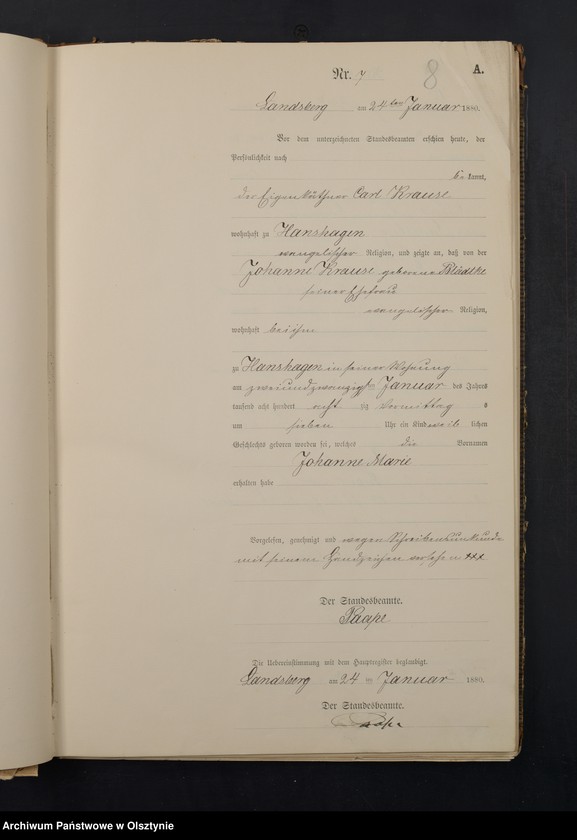 Nr. 7
8
A.
Landsberg am 24ten Januar 1880.
Vor dem unterzeichneten Standesbeamten erschien heute, der
Persönlichkeit nach
be kannt,
der Eigenkäthner Carl Krause
wohnhaft zu Hanshagen
evangelischer Religion, und zeigte an, daß von der
Johanne Krause geborene Bladtke
seiner Ehefrau
evangelischer Religion,
wohnhaft bei ihm
zu Hanshagen in seiner Wohnung
am zweiundzwanzigsten Januar des Jahres
tausend acht hundert acht zig Vormittag s
um sieben Uhr ein Kind weib lichen
Geschlechts geboren worden sei, welches die Vornamen
Johanne Marie
erhalten habe
Vorgelesen, genehmigt und wegen Schreibensunkunde
mit seinem Handzeichen versehen +++
Der Standesbeamte.
Paape
Die Uebereinstimmung mit dem Hauptregister beglaubigt.
Landsberg am 24 ten Januar 1880.
Der Standesbeamte.
Paape
Archiwum Państwowe w Olsztynie